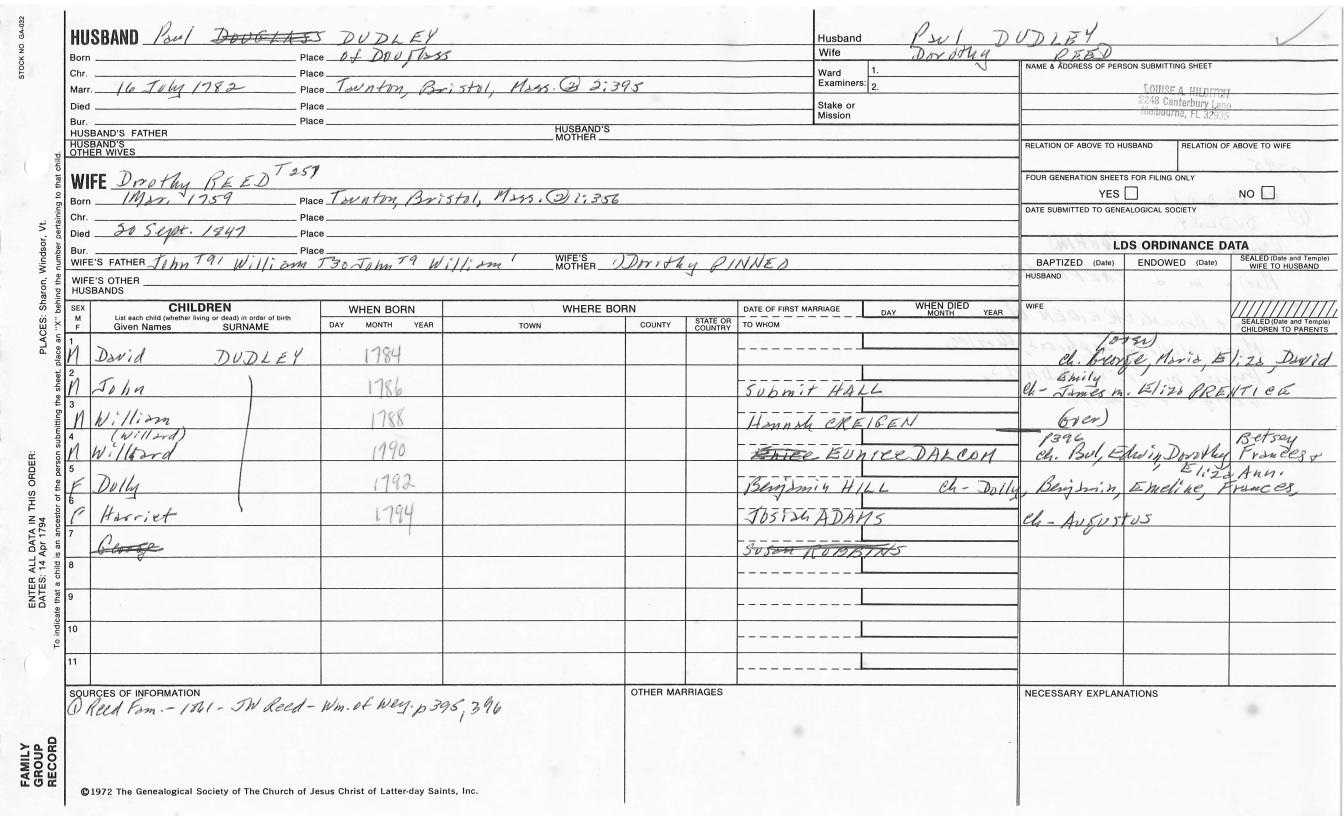 STOCK NO. GA-032
HUSBAND Paul DOUGLASS DUDLEY
Born Place of Douglass
Chr. Place
Marr. 16 July 1782 Place Taunton, Bristol, Mass. ② 2:395
Died Place
Bur. Place
HUSBAND'S FATHER HUSBAND'S MOTHER
HUSBAND'S OTHER WIVES
WIFE Dorothy REED T259
Born 1 Mar. 1759 Place Taunton, Bristol, Mass. ② 1:356
Chr. Place
Died 20 Sept. 1847 Place
Bur. Place
WIFE'S FATHER John T91 William T30 John T9 William 1 WIFE'S MOTHER 1) Dorothy PINNEO
WIFE'S OTHER HUSBANDS
Husband Paul DUDLEY
Wife Dorothy REED
Ward Examiners: 1. 2.
Stake or Mission
NAME & ADDRESS OF PERSON SUBMITTING SHEET
2248 Canterbury Lane
Melbourne, FL 32935
RELATION OF ABOVE TO HUSBAND RELATION OF ABOVE TO WIFE
FOUR GENERATION SHEETS FOR FILING ONLY
YES NO
DATE SUBMITTED TO GENEALOGICAL SOCIETY
LDS ORDINANCE DATA
BAPTIZED (Date) ENDOWED (Date) SEALED (Date and Temple) WIFE TO HUSBAND
HUSBAND
WIFE
SEALED (Date and Temple) CHILDREN TO PARENTS
SEX M F
CHILDREN
List each child (whether living or dead) in order of birth
Given Names SURNAME
WHEN BORN
DAY MONTH YEAR
WHERE BORN
TOWN COUNTY STATE OR COUNTRY
DATE OF FIRST MARRIAGE
TO WHOM
WHEN DIED
DAY MONTH YEAR
(over)
1 M David DUDLEY 1784 ch. George, Maria, Eliza, David
Emily
2 M John 1786 Submit HALL ch- James m. Eliza PRENTICE
3 M William 1788 Hannah CREIGEN (over)
(Willard) p396 Betsey
4 M Willard 1790 Eunice EUNICE DALCOM ch. Bul, Edwin, Dorothy, Frances +
Eliza Ann.
5 F Dolly 1792 Benjamin HILL ch- Dolly, Benjamin, Emeline, Frances,
6 F Harriet 1794 Josiah ADAMS ch- AUGUSTUS
7 George Susan ROBBINS
8
9
10
11
SOURCES OF INFORMATION
① Reed Fam.- 1861 - JW Reed - Wm. of Wey. p395, 396
OTHER MARRIAGES
NECESSARY EXPLANATIONS
©1972 The Genealogical Society of The Church of Jesus Christ of Latter-day Saints, Inc.
FAMILY GROUP RECORD
ENTER ALL DATA IN THIS ORDER:
DATES: 14 Apr 1794
PLACES: Sharon, Windsor, Vt.
To indicate that a child is an ancestor of the person submitting the sheet, place an "X" behind the number pertaining to that child.